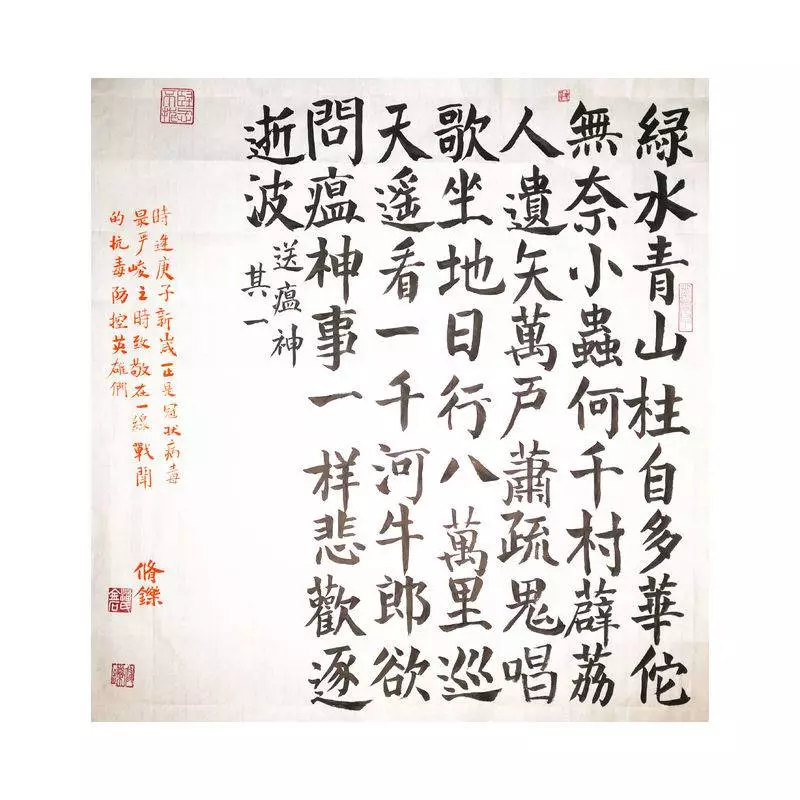 緑水青山柱自多華佗
無奈小蟲何千村薜荔
人遺矢萬戸蕭疏鬼唱
歌坐地日行八萬里巡
天遥看一千河牛郎欲
問瘟神事一样悲歡逐
逝波
送瘟神
其一
時進庚子新歲正是冠状病毒
最严峻之時致敬在一線戰鬥
的抗毒防控英雄們
脩鑠